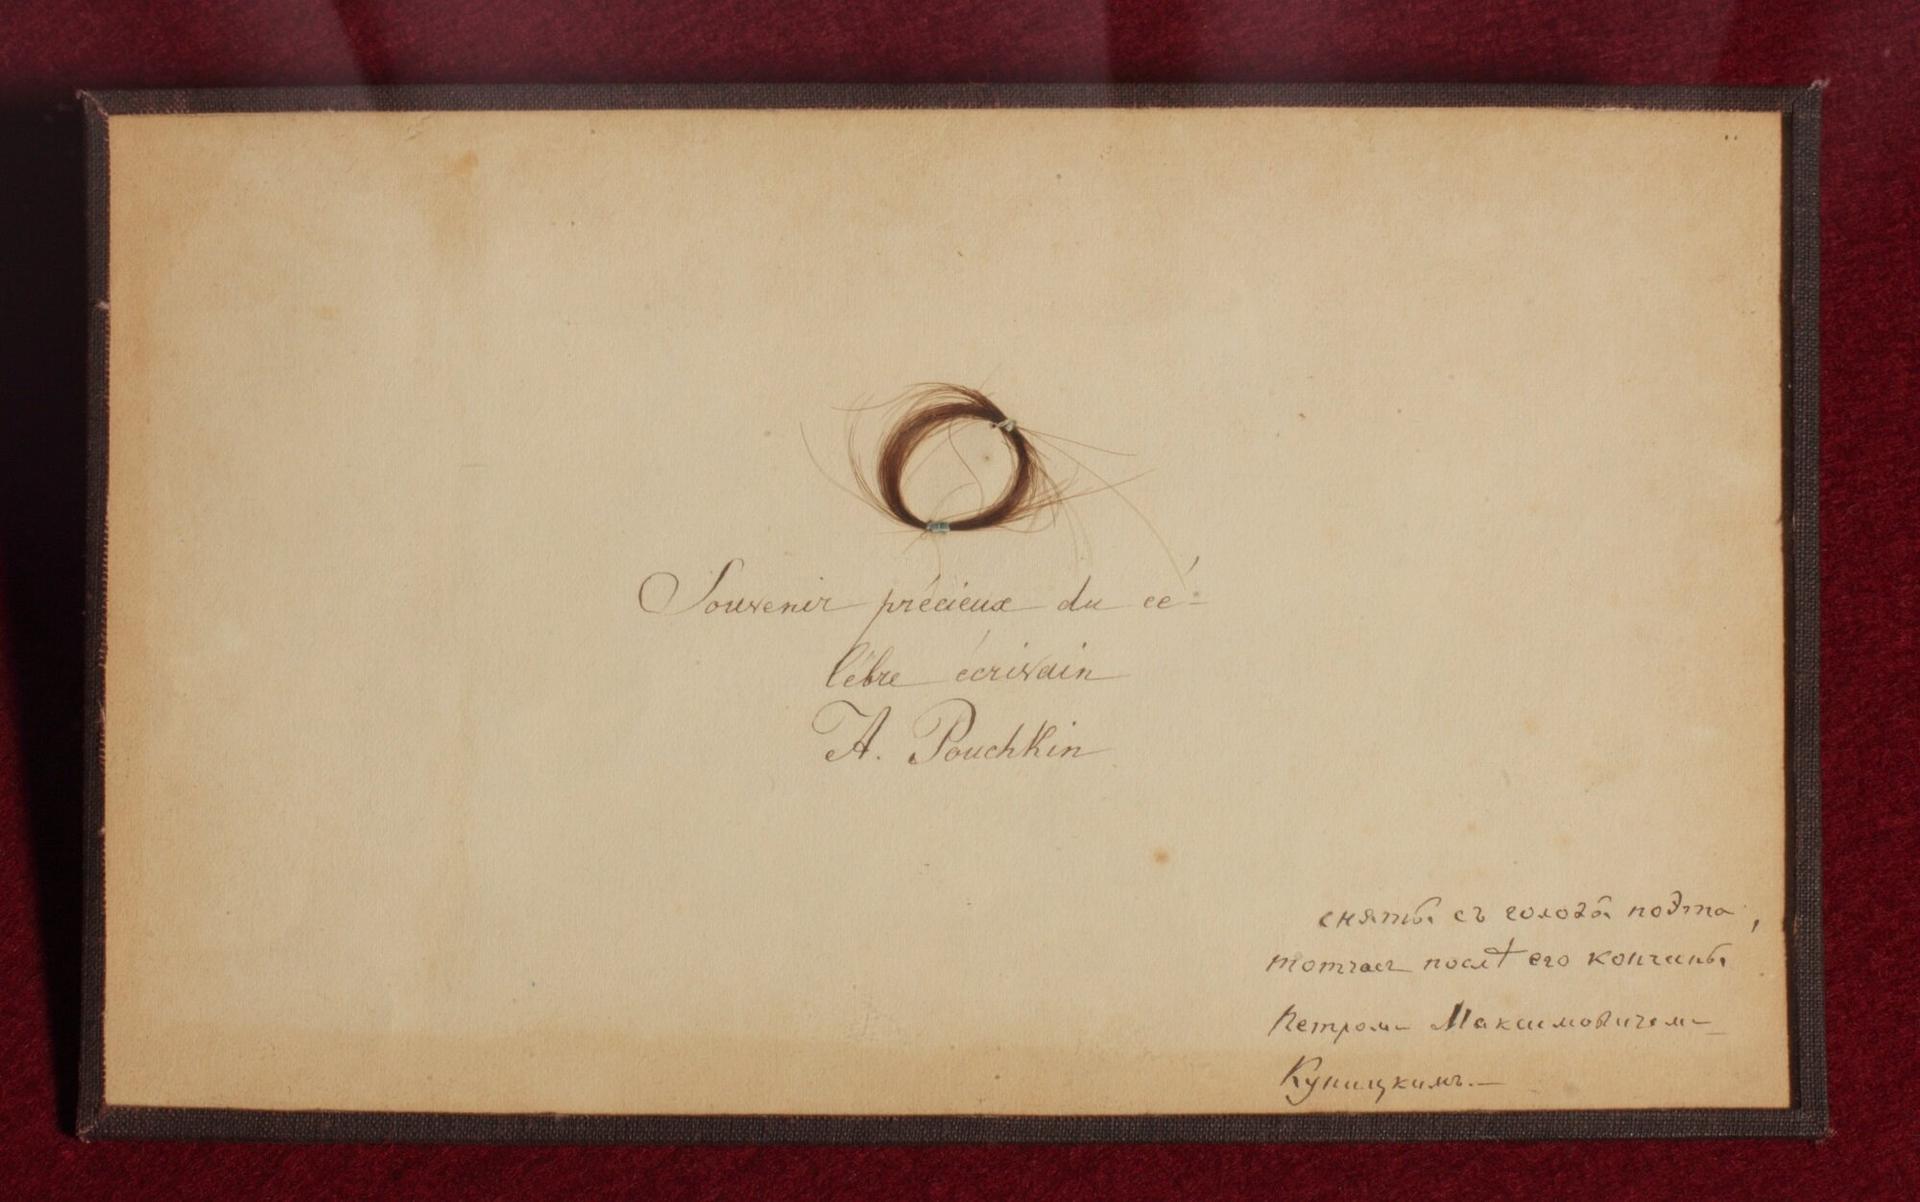 Souvenir précieux du cé-
lébre écrivain
A. Pouchkin
сняты съ головы поэта,
тотчас послѣ его кончины
Петромъ Максимовичемъ
Куницкимъ.—